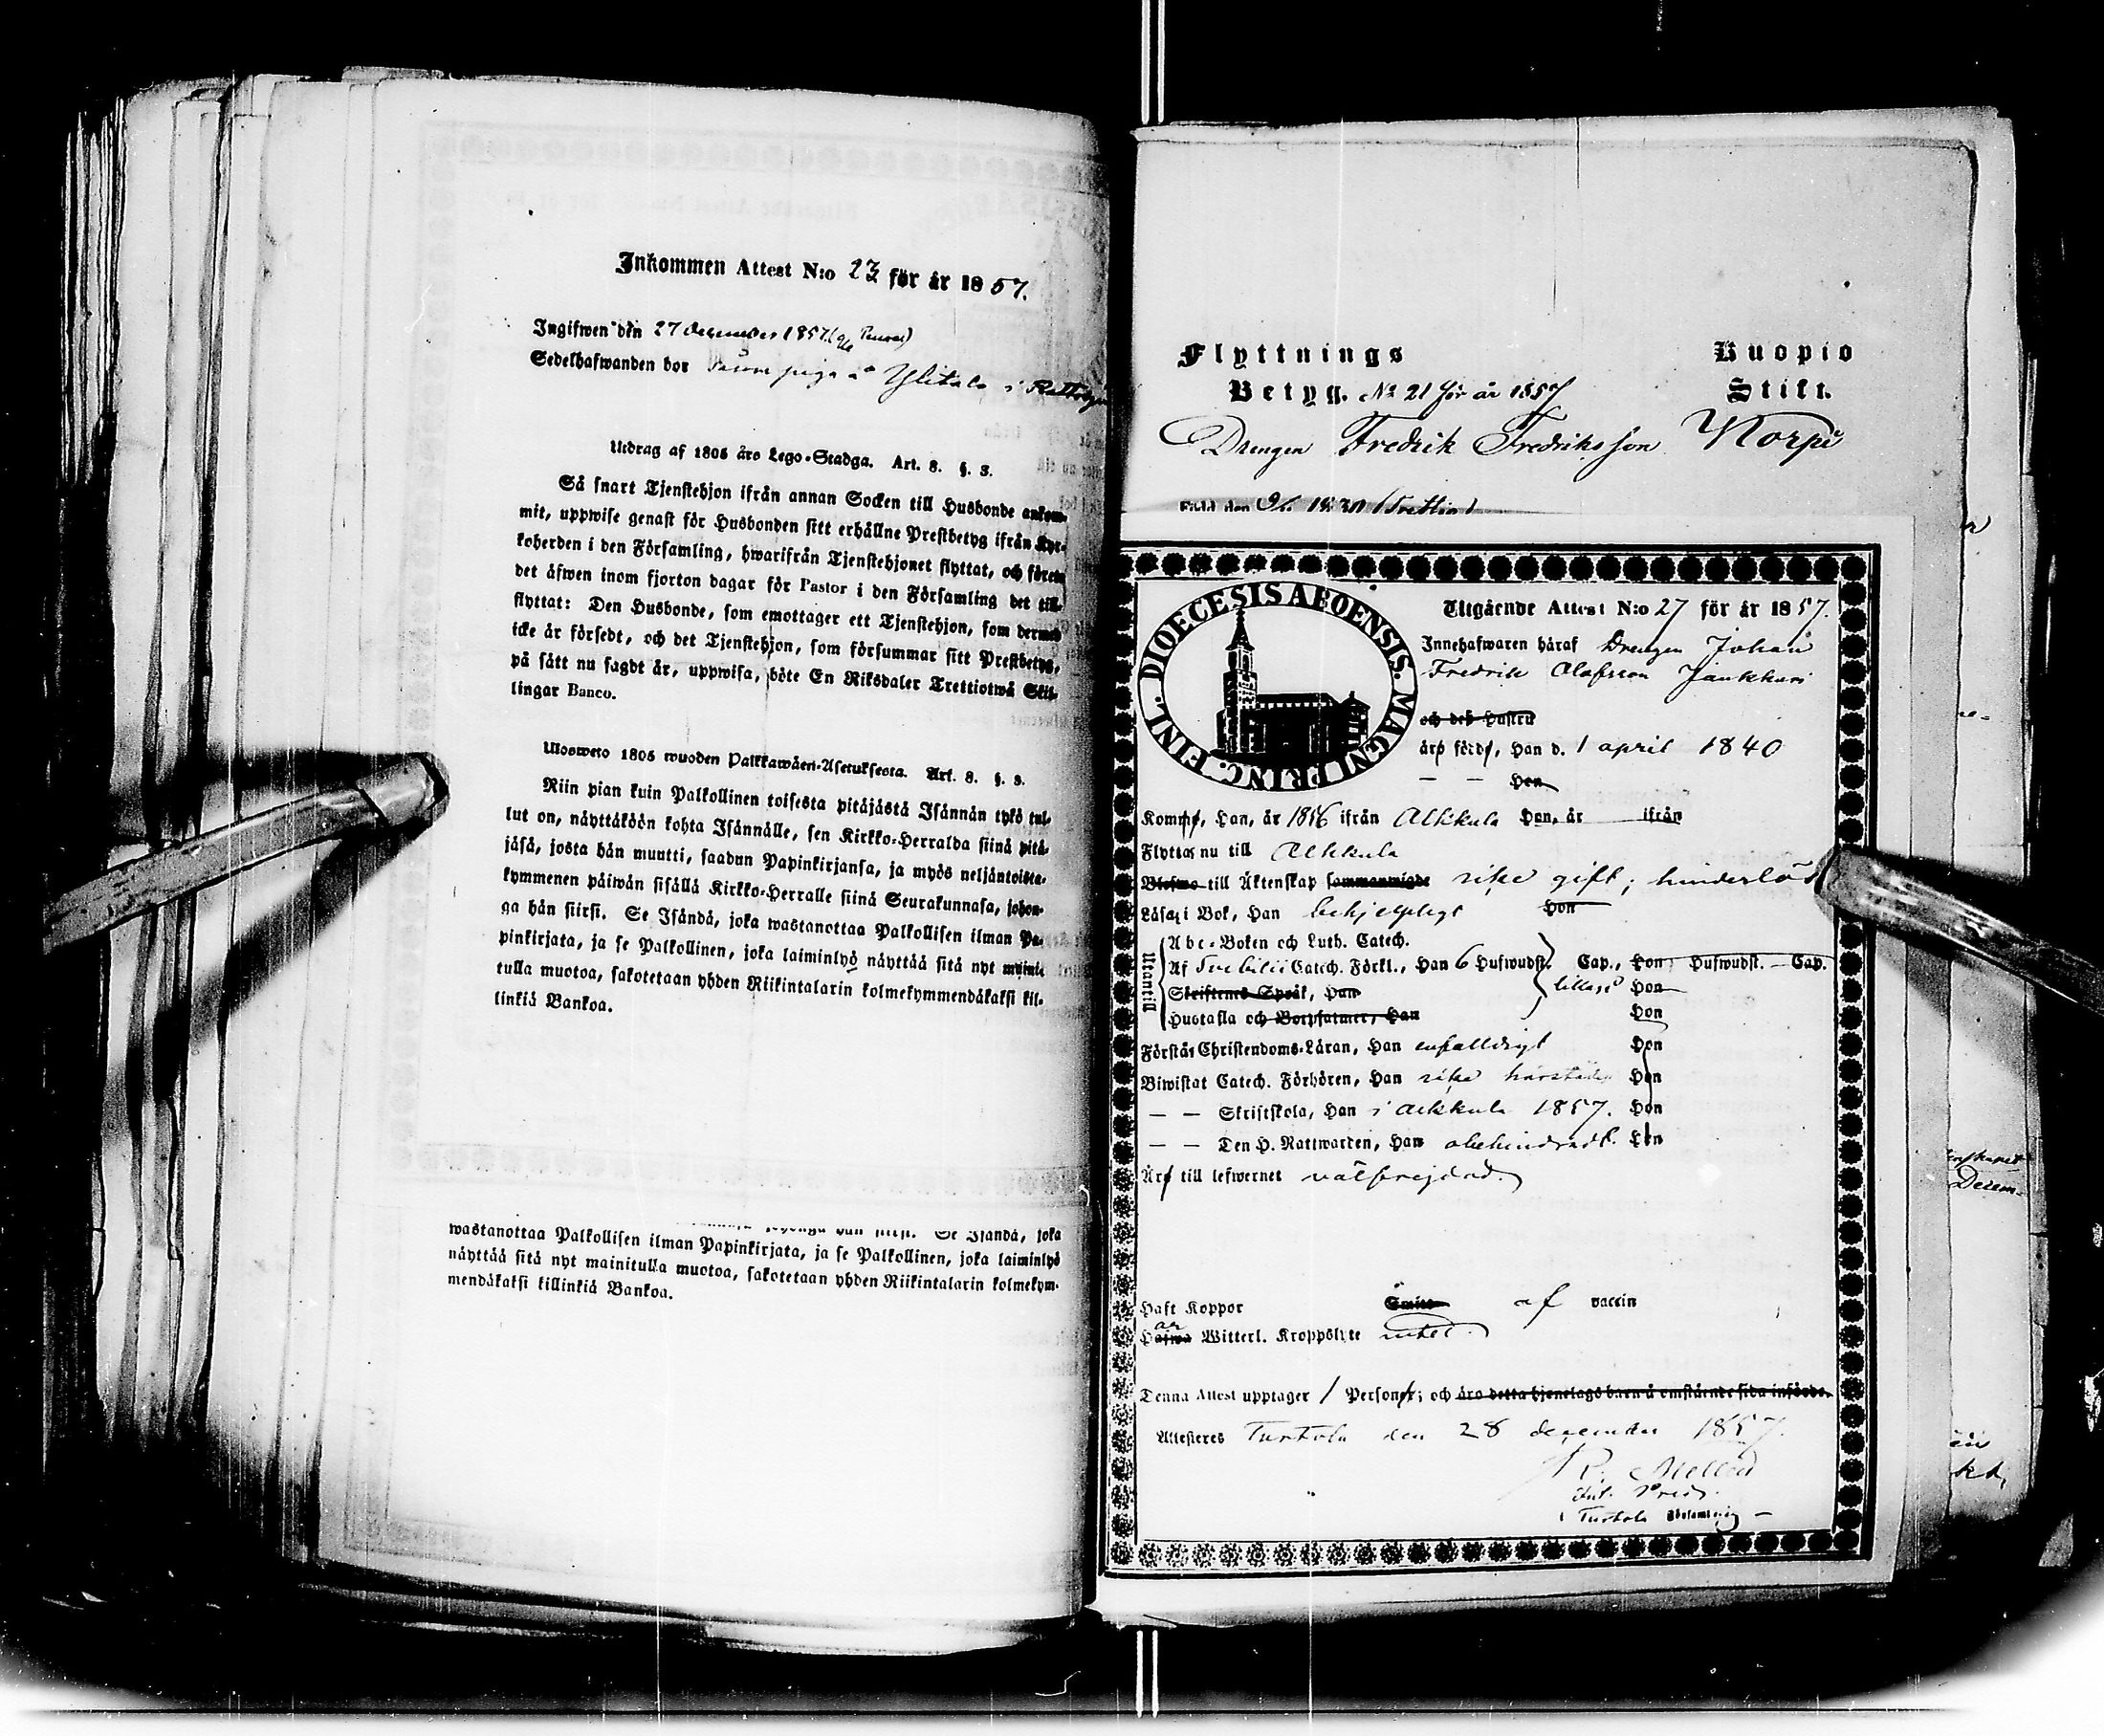 Inkommen Attest N:o 23 för år 1857.
Ingifwen den 27 december 1857
Sedelhafwanden bor piga å Ylitalo i
Utdrag af 1805 års Lego-Stadga. Art. 8. §. 3.
Så snart Tjenstehjon ifrån annan Socken till Husbonde ankom-
mit, uppwise genast för Husbonden sitt erhållne Prestbetyg ifrån Kyr-
koherden i den Församling, hwarifrån Tjenstehjonet flyttat, och förete
det äfwen inom fjorton dagar för Pastor i den Församling det till-
flyttat: Den Husbonde, som emottager ett Tjenstehjon, som dermed
icke är försedt, och det Tjenstehjon, som försummar sitt Prestbetyg,
på sätt nu sagdt är, uppwisa, böte En Riksdaler Trettiotwå Skil-
lingar Banco.
Ulosweto 1805 wuoden Palkkawäen-Asetuksesta. Art. 8. §. 3.
Niin pian kuin Palkollinen toisesta pitäjästä Isännän tykö tul-
lut on, näyttäköön kohta Isännälle, sen Kirkko-Herralda siinä pitä-
jäsä, josta hän muutti, saadun Papinkirjansa, ja myös neljäntoista-
kymmenen päiwän sisällä Kirkko-Herralle siinä Seurakunnasa, johon-
ga hän siirsi. Se Isändä, joka wastanottaa Palkollisen ilman Pa-
pinkirjata, ja se Palkollinen, joka laiminlyö näyttää sitä nyt mainit-
tulla muotoa, sakotetaan yhden Riikintalarin kolmekymmendäkaksi kil-
linkiä Bankoa.
Se Isändä, joka
wastanottaa Palkollisen ilman Papinkirjata, ja se Palkollinen, joka laiminlyö
näyttää sitä nyt mainitulla muotoa, sakotetaan yhden Riikintalarin kolmekym-
mendäkaksi killinkiä Bankoa.
Flyttnings Kuopio
Betyg. No 21 för år 1857 Stift.
Drengen Fredrik Fredriksson Norpi
Född den 1830 (Trettio)
DIOECESIS ABOENSIS. MAGNI PRINC. FINL.
Utgående Attest N:o 27 för år 1857.
Innehafwaren häraf Drengen Johan
Fredrik Olofsson Jankkari
och des Hustru
äro födde, Han d. 1 april 1840
— — Hon
Kommo, Han, år 1856 ifrån Alkkula Hon, år ifrån
Flyttar nu till Alkkula
till Äktenskap sammanwigde icke gift; hinderlös
Läsa i Bok, Han behjelpligt Hon
Utantill
Abc-Boken och Luth. Catech.
Af Svebilii Catech. Förkl., Han 6 Hufwudst. Cap., Hon Hufwudst. — Cap.
Skriftenes Språk, Han Hon
Hustafla och Botpsalmer, Han Hon
Förstår Christendoms-Läran, Han enfaldigt Hon
Biwistat Catech. Förhören, Han icke härstädes Hon
— — Skriftskola, Han i Alkkula 1857. Hon
— — Den H. Nattwarden, Han obehindradt. Hon
Äro till lefwernet välfrejdad.
Haft Koppor Smitt af vaccin
Hafwa ar Witterl. Kroppslyte intet.
Denna Attest upptager 1 Personer; och äro detta hjonelags barn å omstående sida införde.
Attesteras Turtola den 28 december 1857.
Turtola Församling